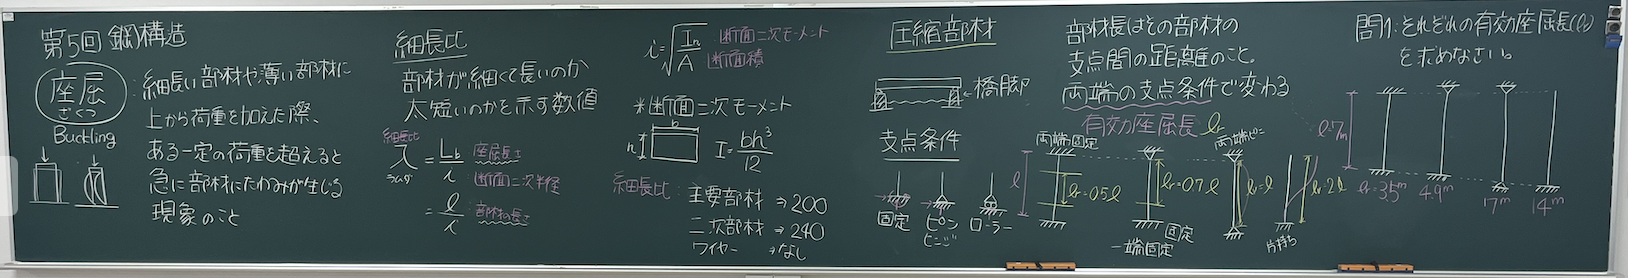 第5回 鋼構造
座屈
ざくつ
Buckling
: 細長い部材や薄い部材に
上から荷重を加えた際、
ある一定の荷重を超えると
急に部材にたわみが生じる
現象のこと
細長比
部材が細くて長いのか
太短いのかを示す数値
細長比
λ = Lb / i
ラムダ
座屈長さ
断面二次半径
= l / i
部材の長さ
i = √(In / A)
断面二次モーメント
断面積
*断面二次モーメント
b
h
I = bh³ / 12
細長比: 主要部材 → 200
二次部材 → 240
ワイヤー → なし
圧縮部材
← 橋脚
支点条件
固定
ピン
ヒンジ
ローラー
部材長はその部材の
支点間の距離のこと。
両端の支点条件で変わる
有効座屈長 lr
両端固定
l
lr=0.5l
lr=0.7l
一端固定
固定
両端ピン
lr=l
lr=2l
片持ち
問1: それぞれの有効座屈長(lr)
を求めなさい。
l=7m
lr=3.5m
4.9m
7m
14m